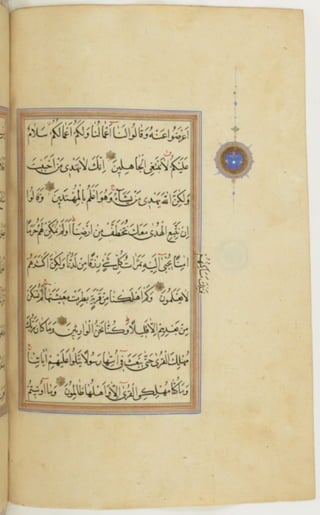 اَعْرَضُوا عَنْهُ وَقَالُوا لَنَا اَعْمَالُنَا وَلَكُمْ اَعْمَالُكُمْ سَلَامٌ
عَلَيْكُمْ لَا نَبْتَغِي الْجَاهِلِينَ اِنَّكَ لَا تَهْدِي مَنْ اَحْبَبْتَ
وَلٰكِنَّ اللّٰهَ يَهْدِي مَنْ يَشَاءُ وَهُوَ اَعْلَمُ بِالْمُهْتَدِينَ وَقَالُوا
اِنْ نَتَّبِعِ الْهُدٰى مَعَكَ نُتَخَطَّفْ مِنْ اَرْضِنَا اَوَلَمْ نُمَكِّنْ لَهُمْ حَرَمًا
اٰمِنًا يُجْبٰى اِلَيْهِ ثَمَرَاتُ كُلِّ شَيْءٍ رِزْقًا مِنْ لَدُنَّا وَلٰكِنَّ اَكْثَرَهُمْ
لَا يَعْلَمُونَ وَكَمْ اَهْلَكْنَا مِنْ قَرْيَةٍ بَطِرَتْ مَعِيشَتَهَا لَمْ تُسْكَنْ
فتلك مساكنهم
مِنْ بَعْدِهِمْ اِلَّا قَلِيلًا وَكُنَّا نَحْنُ الْوَارِثِينَ وَمَا كَانَ رَبُّكَ
مُهْلِكَ الْقُرٰى حَتّٰى يَبْعَثَ فِي اُمِّهَا رَسُولًا يَتْلُوا عَلَيْهِمْ اٰيَاتِنَا
وَمَا كُنَّا مُهْلِكِي الْقُرٰى اِلَّا وَاَهْلُهَا ظَالِمُونَ وَمَا اُوتِيتُمْ